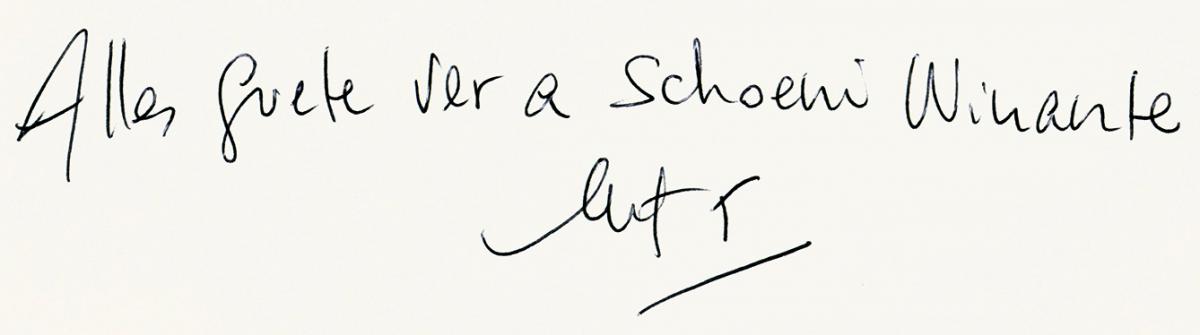 Alles guete ver a schoeni Winante